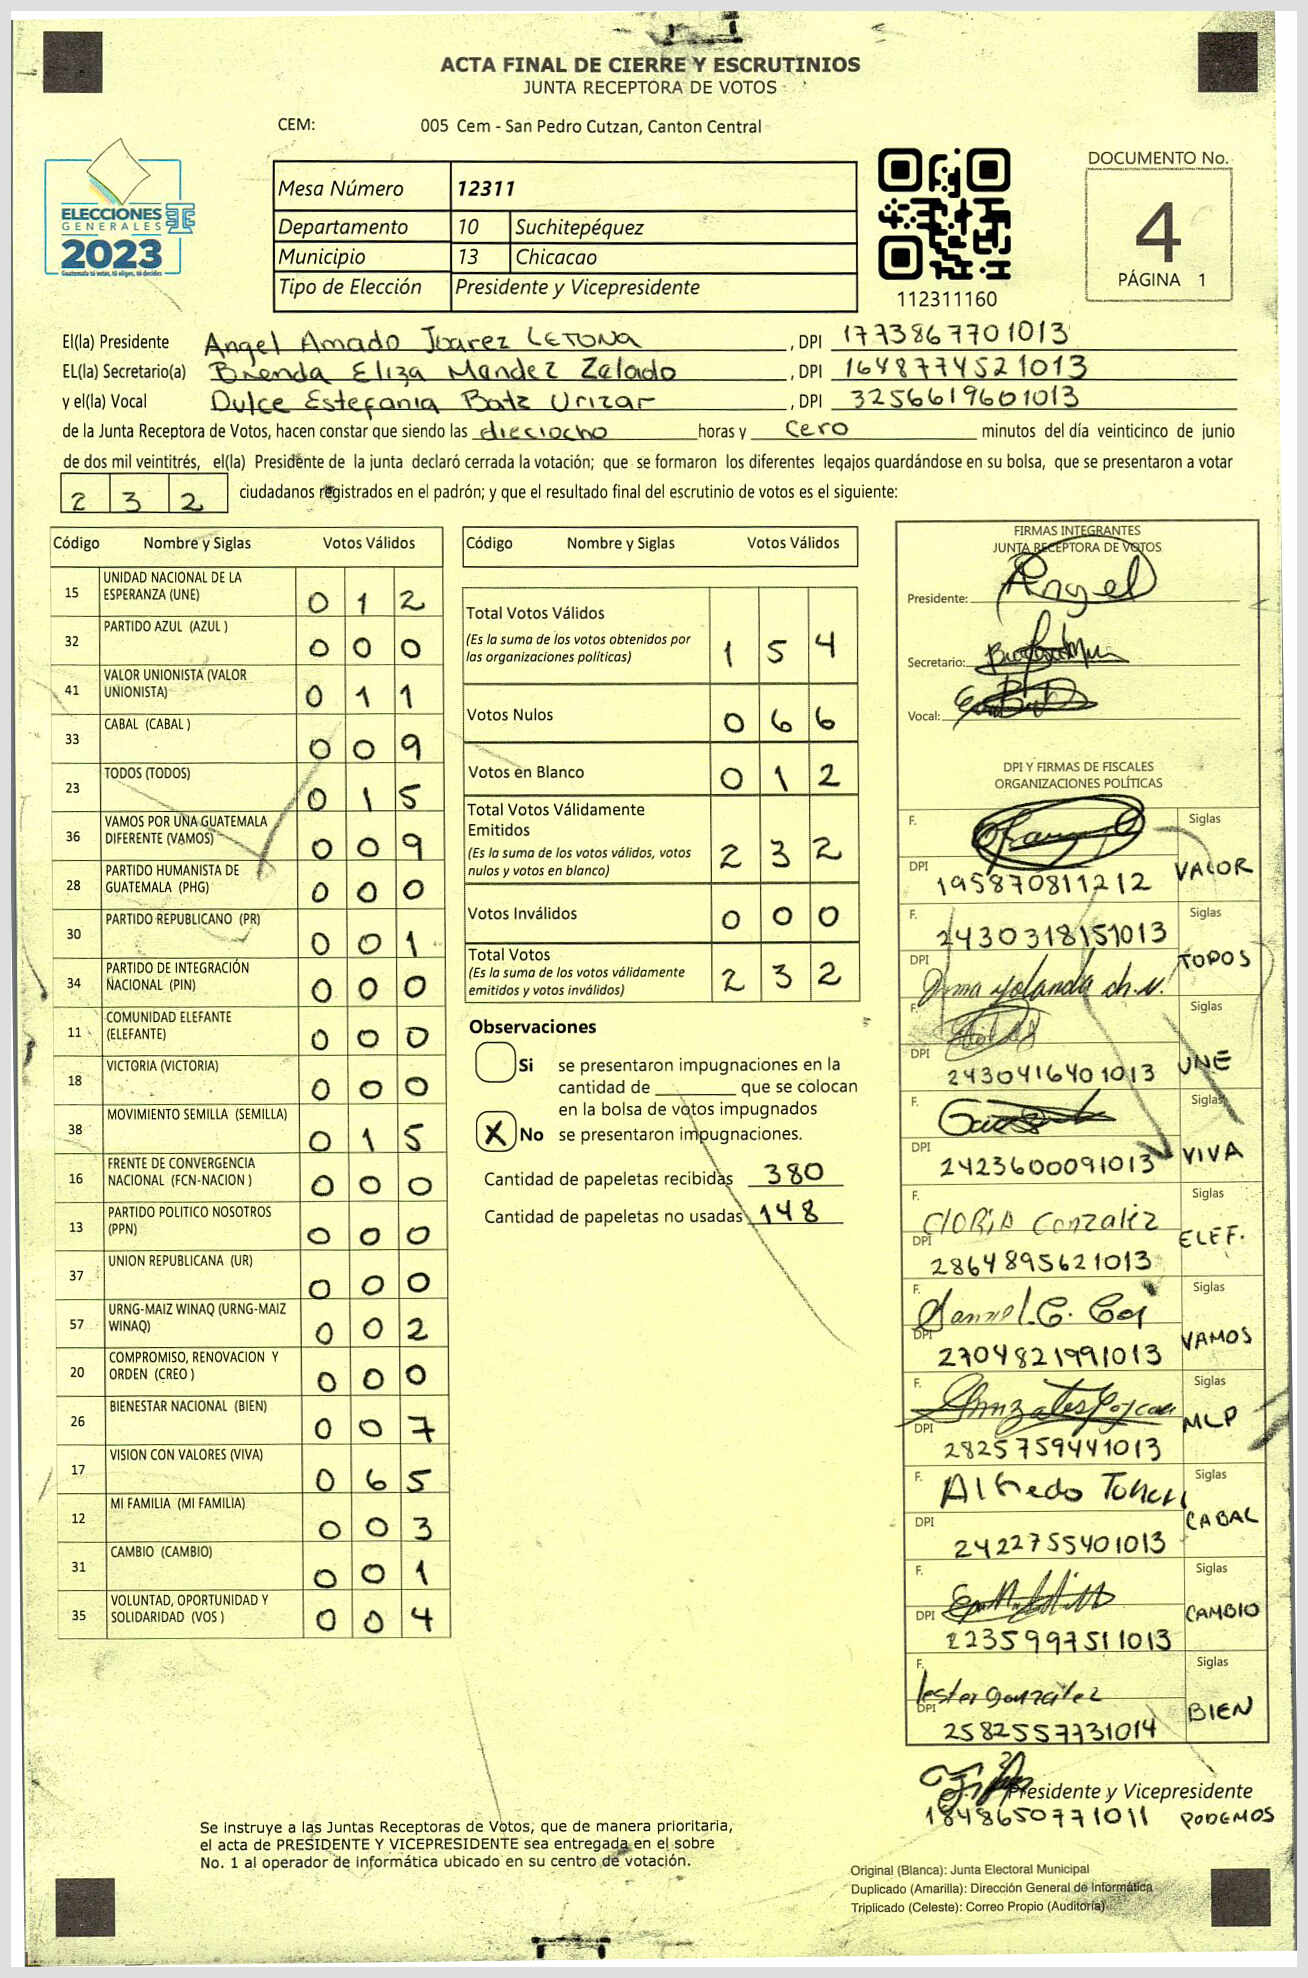 ACTA FINAL DE CIERRE Y ESCRUTINIOS
JUNTA RECEPTORA DE VOTOS
CEM: 005 Cem - San Pedro Cutzan, Canton Central
ELECCIONES
GENERALES
2023
Guatemala tú votas, tú eliges, tú decides
Mesa Número 12311
Departamento 10 Suchitepéquez
Municipio 13 Chicacao
Tipo de Elección Presidente y Vicepresidente
112311160
DOCUMENTO No.
4
PÁGINA 1
El(la) Presidente Angel Amado Juarez LETONA, DPI 1773867701013
EL(la) Secretario(a) Brenda Eliza Mendez Zelado, DPI 1648774521013
y el(la) Vocal Dulce Estefania Batz Urizar, DPI 3256619601013
de la Junta Receptora de Votos, hacen constar que siendo las dieciocho horas y cero minutos del día veinticinco de junio
de dos mil veintitrés, el(la) Presidente de la junta declaró cerrada la votación; que se formaron los diferentes legajos guardándose en su bolsa, que se presentaron a votar
2 3 2 ciudadanos registrados en el padrón; y que el resultado final del escrutinio de votos es el siguiente:
Código Nombre y Siglas Votos Válidos
15 UNIDAD NACIONAL DE LA ESPERANZA (UNE) 0 1 2
32 PARTIDO AZUL (AZUL ) 0 0 0
41 VALOR UNIONISTA (VALOR UNIONISTA) 0 1 1
33 CABAL (CABAL ) 0 0 9
23 TODOS (TODOS) 0 1 5
36 VAMOS POR UNA GUATEMALA DIFERENTE (VAMOS) 0 0 9
28 PARTIDO HUMANISTA DE GUATEMALA (PHG) 0 0 0
30 PARTIDO REPUBLICANO (PR) 0 0 1
34 PARTIDO DE INTEGRACIÓN NACIONAL (PIN) 0 0 0
11 COMUNIDAD ELEFANTE (ELEFANTE) 0 0 0
18 VICTORIA (VICTORIA) 0 0 0
38 MOVIMIENTO SEMILLA (SEMILLA) 0 1 5
16 FRENTE DE CONVERGENCIA NACIONAL (FCN-NACION ) 0 0 0
13 PARTIDO POLITICO NOSOTROS (PPN) 0 0 0
37 UNION REPUBLICANA (UR) 0 0 0
57 URNG-MAIZ WINAQ (URNG-MAIZ WINAQ) 0 0 2
20 COMPROMISO, RENOVACION Y ORDEN (CREO ) 0 0 0
26 BIENESTAR NACIONAL (BIEN) 0 0 7
17 VISION CON VALORES (VIVA) 0 6 5
12 MI FAMILIA (MI FAMILIA) 0 0 3
31 CAMBIO (CAMBIO) 0 0 1
35 VOLUNTAD, OPORTUNIDAD Y SOLIDARIDAD (VOS ) 0 0 4
Código Nombre y Siglas Votos Válidos
Total Votos Válidos
(Es la suma de los votos obtenidos por
las organizaciones políticas) 1 5 4
Votos Nulos 0 6 6
Votos en Blanco 0 1 2
Total Votos Válidamente
Emitidos
(Es la suma de los votos válidos, votos
nulos y votos en blanco) 2 3 2
Votos Inválidos 0 0 0
Total Votos
(Es la suma de los votos válidamente
emitidos y votos inválidos) 2 3 2
Observaciones
Si se presentaron impugnaciones en la
cantidad de ________ que se colocan
en la bolsa de votos impugnados
X No se presentaron impugnaciones.
Cantidad de papeletas recibidas 380
Cantidad de papeletas no usadas 148
FIRMAS INTEGRANTES
JUNTA RECEPTORA DE VOTOS
Presidente: Angel
Secretario:
Vocal:
DPI Y FIRMAS DE FISCALES
ORGANIZACIONES POLÍTICAS
F. Siglas
DPI 195870811212 VALOR
F. 2430318151013 Siglas
DPI Irma Yolanda ch. v. TODOS
F. Siglas
DPI 2430416401013 UNE
F. Siglas
DPI 2423600091013 VIVA
F. GLORIA Gonzalez Siglas
DPI 2864895621013 ELEF.
F. Siglas
DPI 2704821991013 VAMOS
F. Siglas
DPI 2825759441013 MLP
F. Alfredo Siglas
DPI 2422755401013 CABAL
F. Siglas
DPI 2235997511013 CAMBIO
F. lester gonzalez Siglas
DPI 2582557731014 BIEN
Presidente y Vicepresidente
1848650771011 PODEMOS
Se instruye a las Juntas Receptoras de Votos, que de manera prioritaria,
el acta de PRESIDENTE Y VICEPRESIDENTE sea entregada en el sobre
No. 1 al operador de informática ubicado en su centro de votación.
Original (Blanca): Junta Electoral Municipal
Duplicado (Amarilla): Dirección General de Informática
Triplicado (Celeste): Correo Propio (Auditoría)